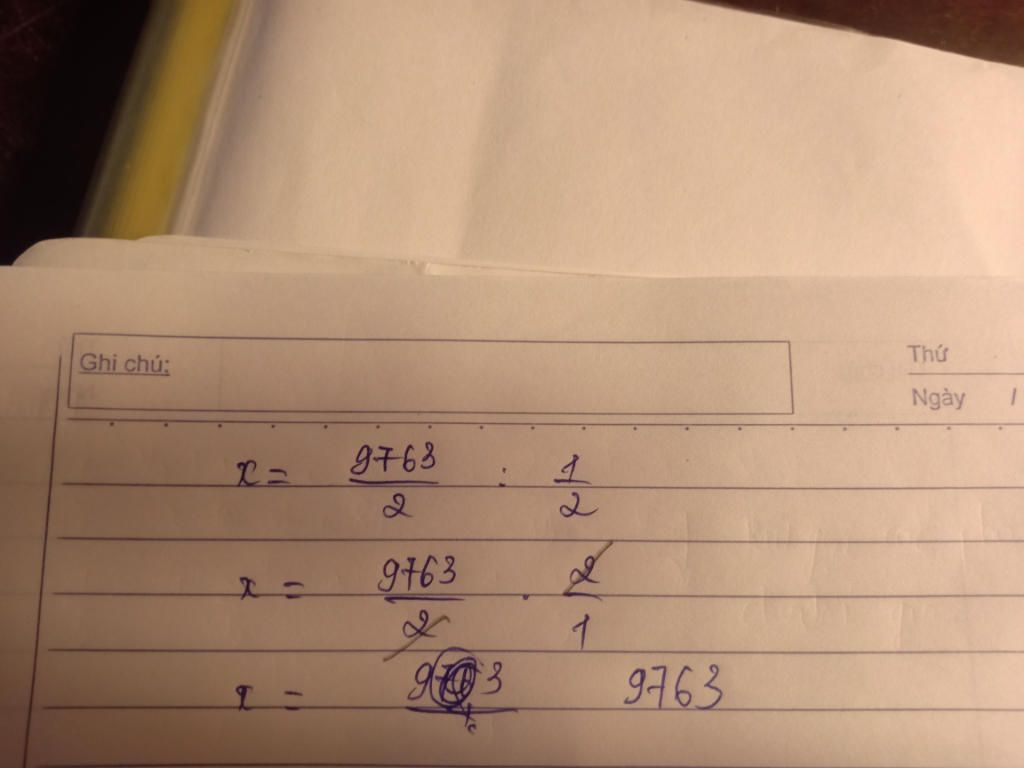 Ghi chú:
Thứ
Ngày /
x = 9763/2 : 1/2
x = 9763/2 . 2/1
x = 9763